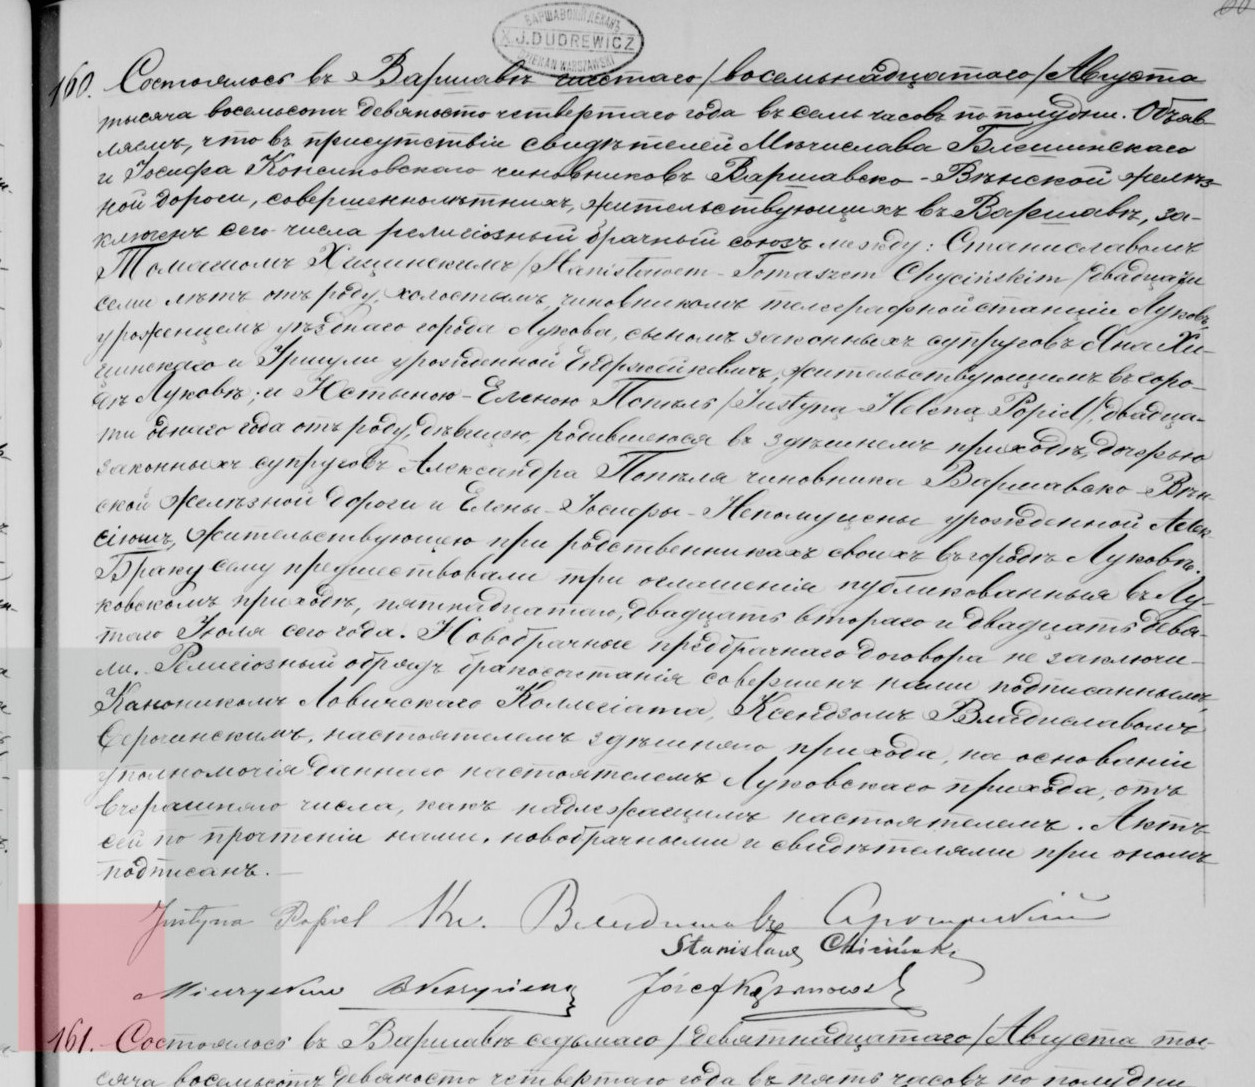 ВАРШАВСКІЙ ДЕКАНЪ
X. J. DUDREWICZ
DZIEKAN WARSZAWSKI
160. Состоялось въ Варшавѣ шестаго /восемьнадцатаго/ Августа
тысяча восемьсотъ девяносто четвертаго года въ семь часовъ по полудни. Объяв-
ляемъ, что въ присутствіи свидѣтелей Мѣчислава Блешинскаго
и Іосифа чиновниковъ Варшавско-Вѣнской желѣз-
ной дороги, совершеннолѣтнихъ, жительствующихъ въ Варшавѣ, за-
ключенъ сего числа религіозный брачный союзъ между: Станиславомъ
Томашомъ Хицинскимъ /Stanisławem-Tomaszem Chycińskim/ двадцати
семи лѣтъ отъ роду, холостымъ, чиновникомъ телеграфной станціи Луковъ,
урожденцемъ уѣзднаго города Лукова, сыномъ законныхъ супруговъ Яна Хи-
цинскаго и Уршули урожденной Ендржейкевичъ, жительствующимъ въ горо-
дѣ Луковѣ; и Юстыною-Еленою Попѣль /Justyną-Heleną Popiel/, двадца-
ти одного года отъ роду, дѣвицею, родившеюся въ здѣшнемъ приходѣ, дочерью
законныхъ супруговъ Александра Попѣля чиновника Варшавско-Вѣн-
ской желѣзной дороги и Елены-Іосифы-Непомуцены урожденной
жительствующею при родственникахъ своихъ въ городѣ Луковѣ.
Браку сему предшествовали три оглашенія публикованныя въ Лу-
ковскомъ приходѣ, пятнадцатаго, двадцать втораго и двадцать девя-
таго Іюля сего года. Новобрачные предбрачнаго договора не заключи-
ли. Религіозный обрядъ бракосочетанія совершенъ нами подписаннымъ
Каноникомъ Ловичскаго Коллегіата, Ксендзомъ Владиславомъ
Сероцинскимъ, настоятелемъ здѣшняго прихода, на основаніи
уполномочія даннаго настоятелемъ Луковскаго прихода, отъ
вчерашняго числа, какъ надлежащимъ настоятелемъ. Актъ
сей по прочтеніи нами, новобрачными и свидѣтелями при ономъ
подписанъ.
Justyna Popiel Кс. Владиславъ
Stanisław Chiciński
Józef
161. Состоялось въ Варшавѣ седьмаго /девятнадцатаго/ Августа ты-
сяча восемьсотъ девяносто четвертаго года въ пять часовъ по полудни